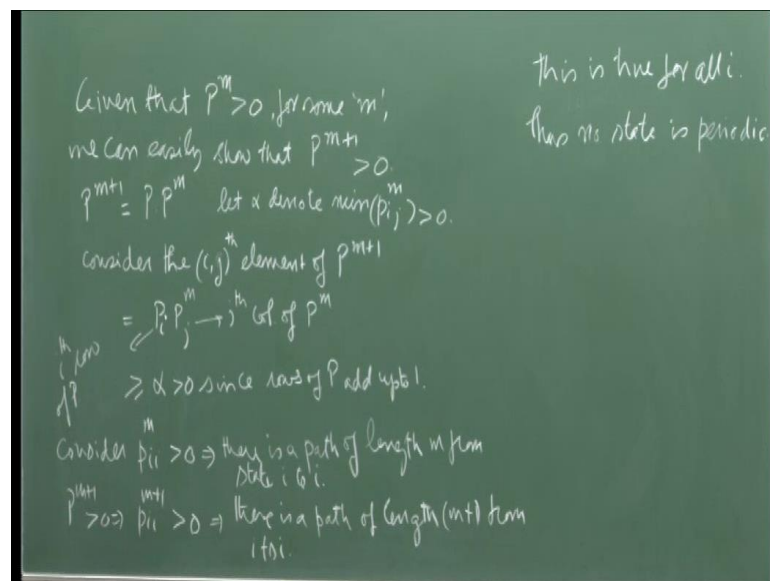 Given that P^m > 0, for some 'm',
we can easily show that P^{m+1} > 0.
P^{m+1} = P.P^m let α denote min(p_{ij}^m) > 0.
consider the (i,j)^{th} element of P^{m+1}
= P_i P_j^m → j^{th} col of P^m
i^{th} row of P
≥ α > 0 since rows of P add upto 1.
Consider p_{ii}^m > 0 ⇒ there is a path of length m from
state i to i.
P^{m+1} > 0 ⇒ p_{ii}^{m+1} > 0 ⇒ there is a path of length (m+1) from
i to i.
this is true for all i.
thus no state is periodic